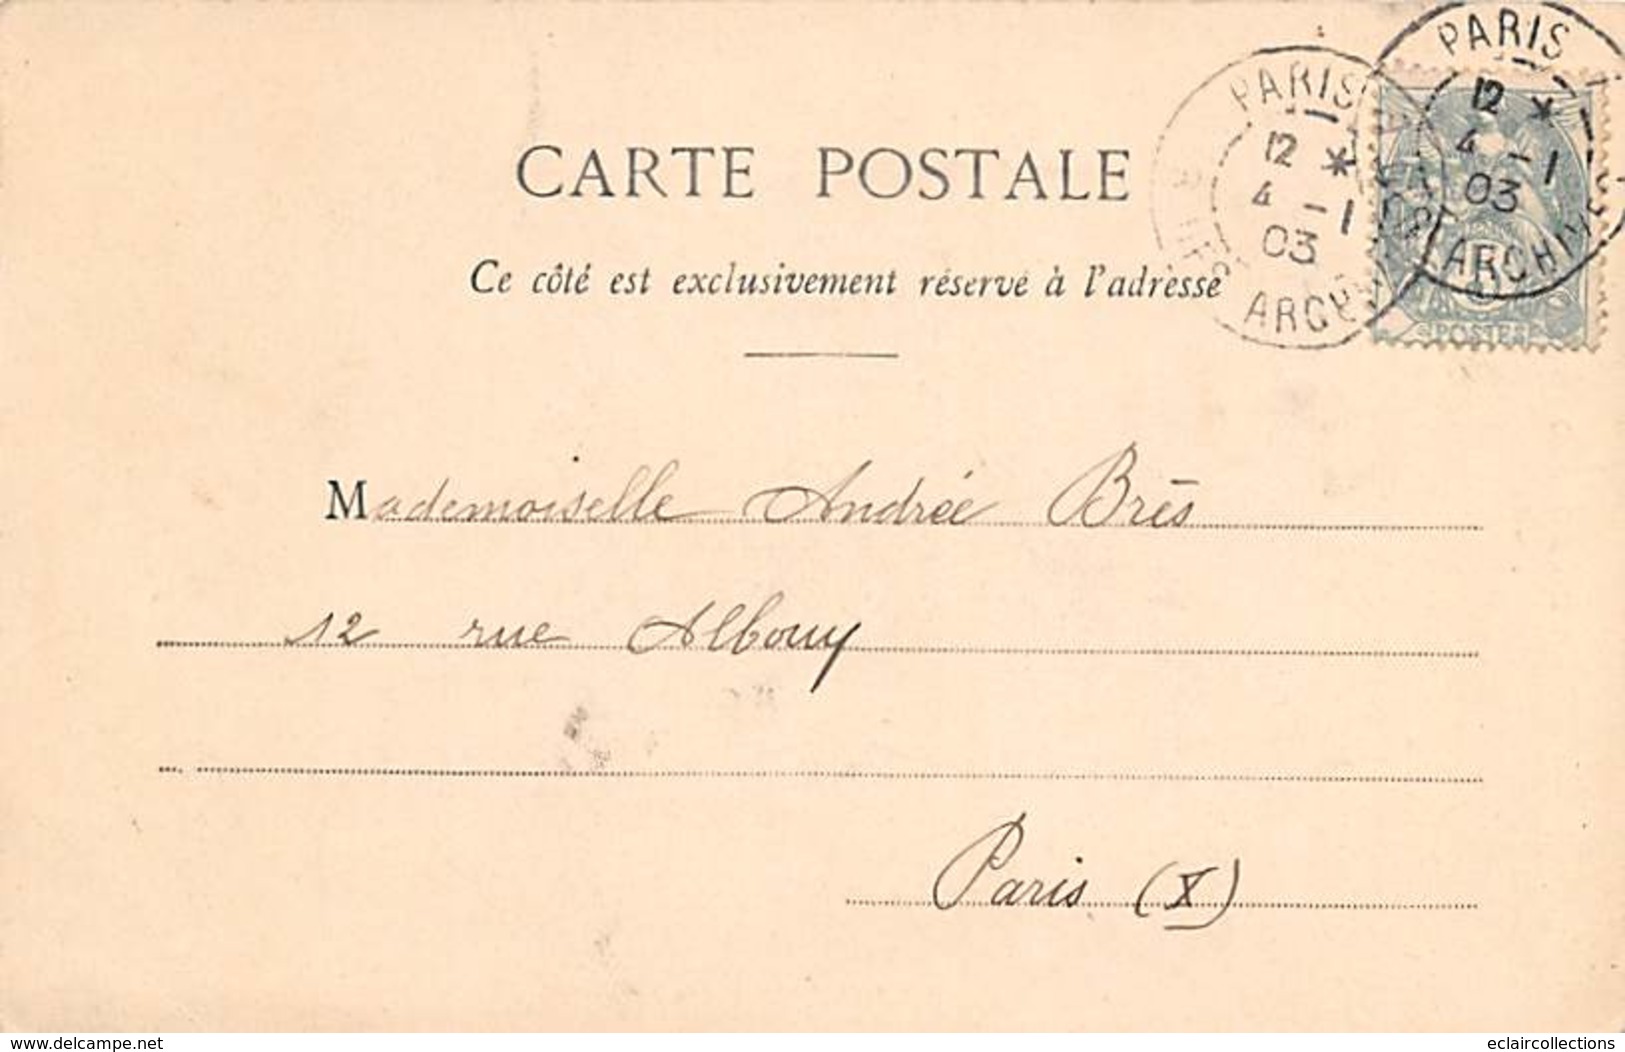 PARIS
12 *
4 - 1
03
ARCHIV
PARIS
12 *
4 - 1
03
POSTES
CARTE POSTALE
Ce côté est exclusivement réservé à l'adresse
Mademoiselle Andrée Brès
12 rue Albouy
Paris (X)
www.delcampe.net
eclaircollections